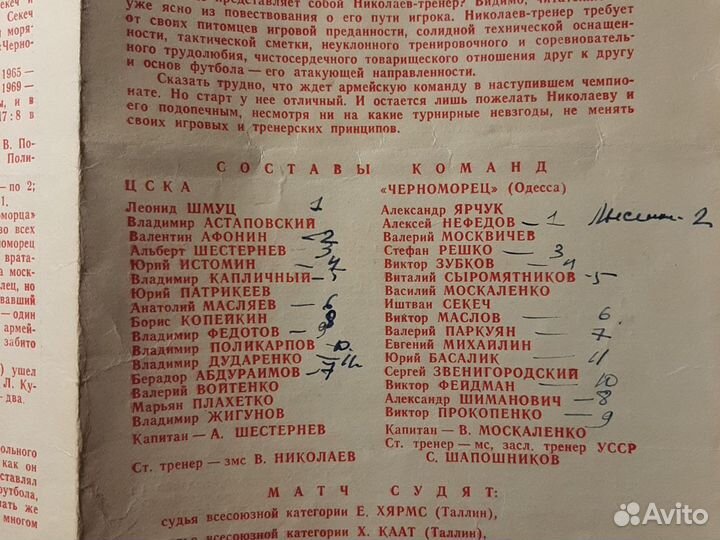 представляет собой Николаев-тренер? Видимо,
уже ясно из повествования о его пути игрока. Николаев-тренер требует
от своих питомцев игровой преданности, солидной технической оснащен-
ности, тактической сметки, неуклонного тренировочного и соревнователь-
ного трудолюбия, чистосердечного товарищеского отношения друг к другу
и основ футбола — его атакующей направленности.
Сказать трудно, что ждет армейскую команду в наступившем чемпио-
нате. Но старт у нее отличный. И остается лишь пожелать Николаеву и
его подопечным, несмотря ни на какие турнирные невзгоды, не менять
своих игровых и тренерских принципов.
СОСТАВЫ КОМАНД
ЦСКА
Леонид ШМУЦ 1
Владимир АСТАПОВСКИЙ
Валентин АФОНИН — 2
Альберт ШЕСТЕРНЕВ — 3
Юрий ИСТОМИН — 4
Владимир КАПЛИЧНЫЙ — 5
Юрий ПАТРИКЕЕВ
Анатолий МАСЛЯЕВ — 6
Борис КОПЕЙКИН 8
Владимир ФЕДОТОВ — 9
Владимир ПОЛИКАРПОВ — 10
Владимир ДУДАРЕНКО — 11
Берадор АБДУРАИМОВ — 7
Валерий ВОЙТЕНКО
Марьян ПЛАХЕТКО
Владимир ЖИГУНОВ
Капитан — А. ШЕСТЕРНЕВ
Ст. тренер — змс В. НИКОЛАЕВ
«ЧЕРНОМОРЕЦ» (Одесса)
Александр ЯРЧУК
Алексей НЕФЕДОВ — 1
2
Валерий МОСКВИЧЕВ
Стефан РЕШКО — 3
Виктор ЗУБКОВ — 4
Виталий СЫРОМЯТНИКОВ — 5
Василий МОСКАЛЕНКО
Иштван СЕКЕЧ
Виктор МАСЛОВ — 6
Валерий ПАРКУЯН — 7
Евгений МИХАЙЛИН
Юрий БАСАЛИК — 11
Сергей ЗВЕНИГОРОДСКИЙ
Виктор ФЕЙДМАН — 10
Александр ШИМАНОВИЧ — 8
Виктор ПРОКОПЕНКО — 9
Капитан — В. МОСКАЛЕНКО
Ст. тренер — мс, засл. тренер УССР
С. ШАПОШНИКОВ
МАТЧ СУДЯТ:
судья всесоюзной категории Е. ХЯРМС (Таллин),
судья всесоюзной категории Х. КААТ (Таллин),
Секеч и
Секеч
моря-
«Черно-
1965 —
1969 —
ы, и в
17:8 в
В. По-
Поли-
—по 2;
1.
морца»
во всех
номорец
врата-
моск-
лец, но
вавший
— один
армей-
забито
) ушел
Л. Ку-
— два.
ольного
как он
ставлял
футбола,
ать же
многом
Avito